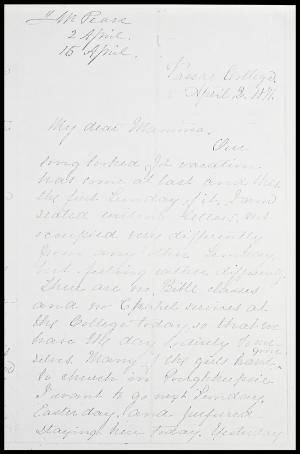 2 April.
15 April.
Vassar College
April 2. 1871.
My dear Mamma,
Our
long looked for vacation
has come at last and this
the first Sunday of it, I am
seated writing letters, not
occupied very differently
from any other Sunday,
but feeling rather differently.
There are no Bible classes
and no Chapel services at
the College today, so that we
have the day entirely to our-
selves. Many of the girls have gone
to church in Poughkeepsie.
I want to go next Sunday,
Easter day, and preferred
staying here today. Yesterday